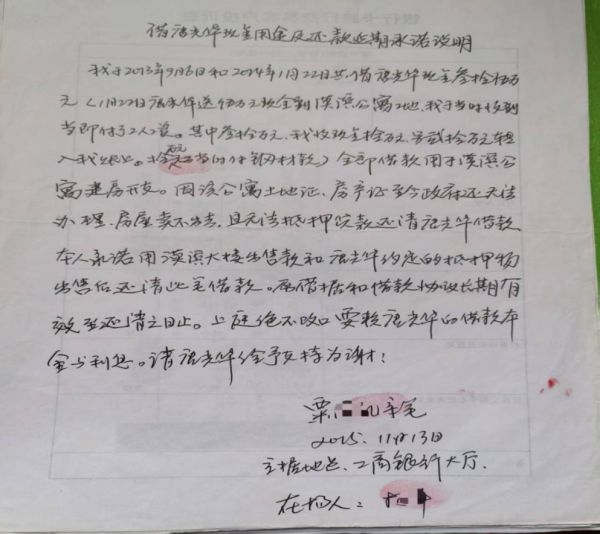 借唐光华现金用途及还款延期承诺说明
我于2013年9月6日和2014年1月22日共借唐光华现金叁拾伍万
元〈1月22日唐光华送伍万元现金到溪滨公寓工地,我于当时收到
当即付了工人工资。其中叁拾万元,我收现金拾万元,另贰拾万元转
入我账上。拾万元当的付钢材款〉全部借款用于溪滨公
寓建房开支。因该公寓土地证、房产证至今政府还无法
办理、房屋卖不出去,且无法抵押贷款还请唐光华借款
本人承诺用溪滨大楼出售款和唐光华约定的抵押物
出售后还请此笔借款。原借据和借款协议长期有
效至还请之日止。上庭绝不改口要赖唐光华的借款本
金与利息。请唐光华给予支持为谢!
粟 亲笔
2015.11月13日
立据地点:工商银行大厅.
在场人: